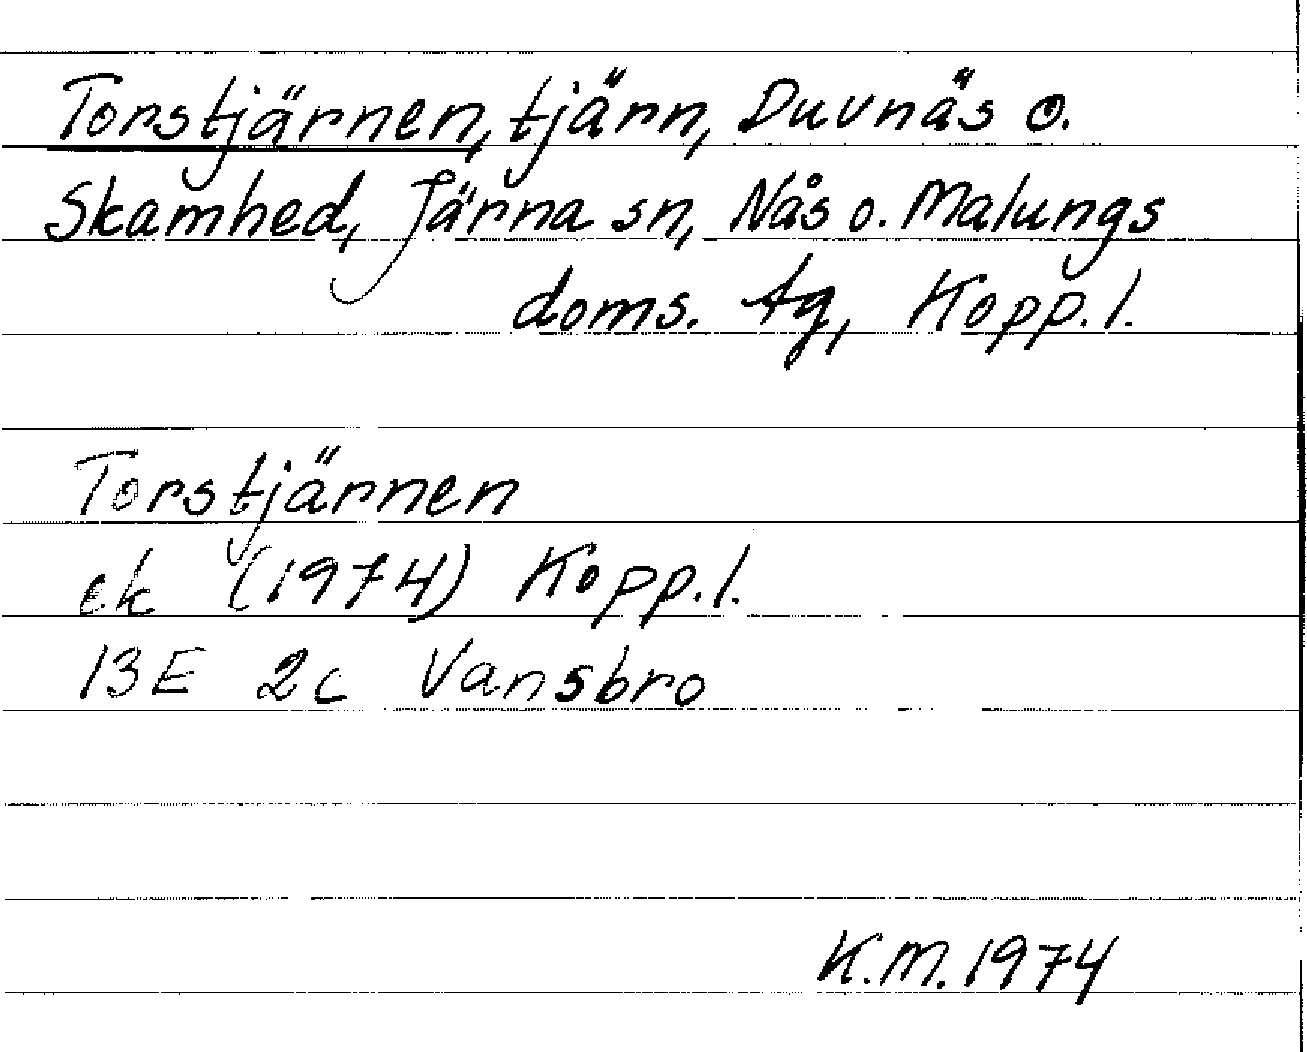 Torstjärnen, tjärn, Duvnäs o.
Skamhed, Järna sn, Nås o. Malungs
doms. tg, Kopp. l.
Torstjärnen
ek (1974) Kopp. l.
13E 2c Vansbro
K.M. 1974